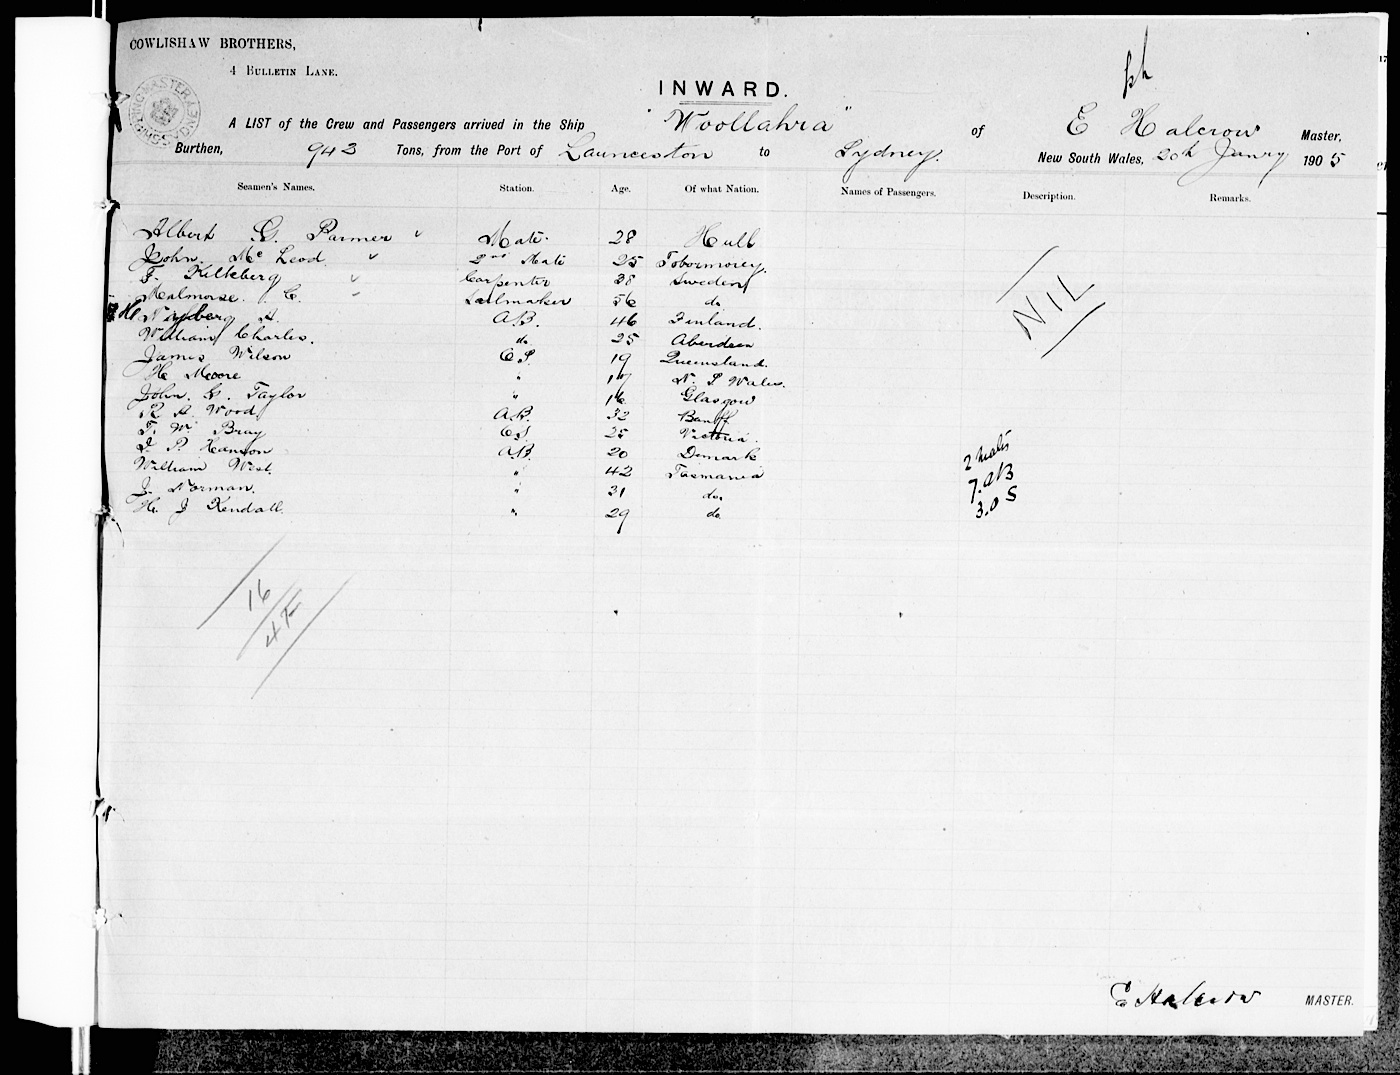 COWLISHAW BROTHERS,
4 BULLETIN LANE.
INWARD.
A LIST of the Crew and Passengers arrived in the Ship "Woollahra" of E Halcrow Master,
Burthen, 943 Tons, from the Port of Launceston to Sydney. New South Wales, 20th Janry 1905
Seamen's Names. Station. Age. Of what Nation. Names of Passengers. Description. Remarks.
Albert G. Parmer Mate 28 Hull
John. Mc Leod 2nd Mate 25 Tobormorey.
F. Killeberg Carpenter 38 Sweden
Malmorse. C. Sailmaker 56 do
Nyberg A. A.B. 46 Finland.
William Charles. do 25 Aberdeen
James Wilson O.S. 19 Queensland.
H. Moore " 17 N. S Wales.
John. G. Taylor " 16 Glasgow
R A. Wood A.B. 32 Banff
F. W. Bray O.S. 25 Victoria.
J. P. Hanson A.B. 20 Denmark
William West. " 42 Tasmania
J. Norman. " 31 do.
H. J Kendall. " 29 do
NIL
2 mates
7. AB
3. O S
16
4 F
E Halcrow MASTER.